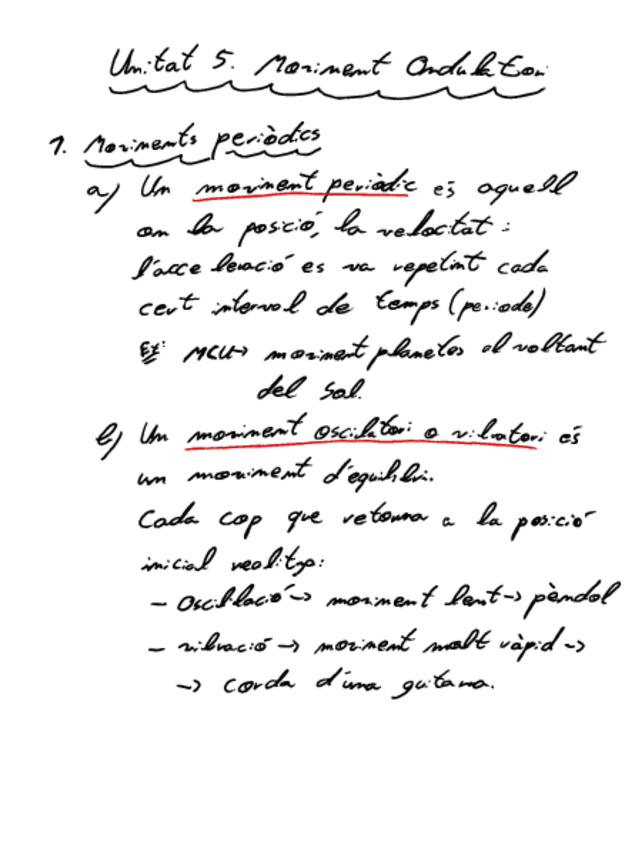 Unitat 5. Moviment Ondulatori
1. Moviments periòdics
a) Un moviment periòdic és aquell
on la posició, la velocitat i
l'acceleració es va repetint cada
cert interval de temps (període)
Ex: MCU → moviment planetes al voltant
del Sol.
b) Un moviment oscilatori o vibratori és
un moviment d'equilibri.
Cada cop que retorna a la posició
inicial realitza:
- Oscil·lació → moviment lent → pèndol
- vibració → moviment molt ràpid →
→ corda d'una guitarra.